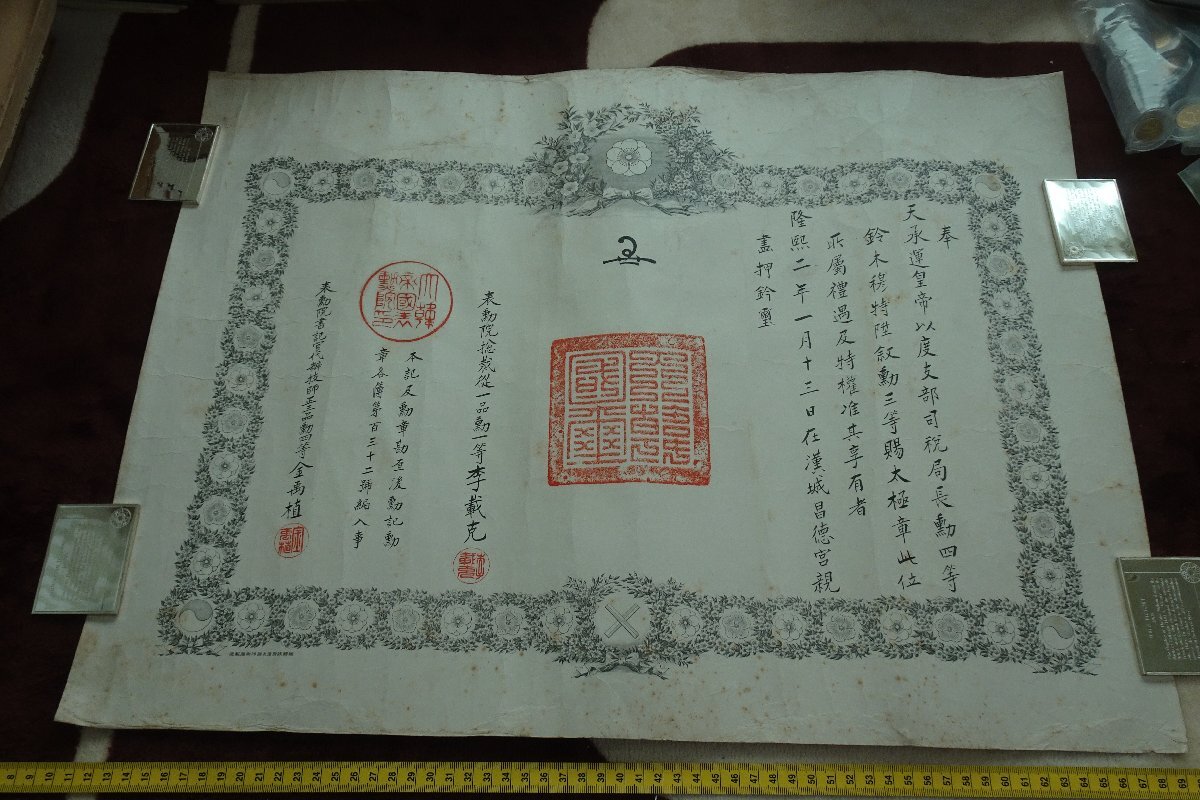 奉
天承運皇帝以度支部司稅局長勳四等
鈴木穆特陞敍勳三等賜太極章此位
所屬禮遇及特權准其享有者
隆熙二年一月十三日在漢城昌德宮親
畫押鈐璽
表勳院捴裁從一品勳一等李載克
本記及勳章勘至後勳記勳
章各簿第百三十二號編入事
表勳院書記官代辦技師正三品勳四等金禹植
大韓帝國表勳院印